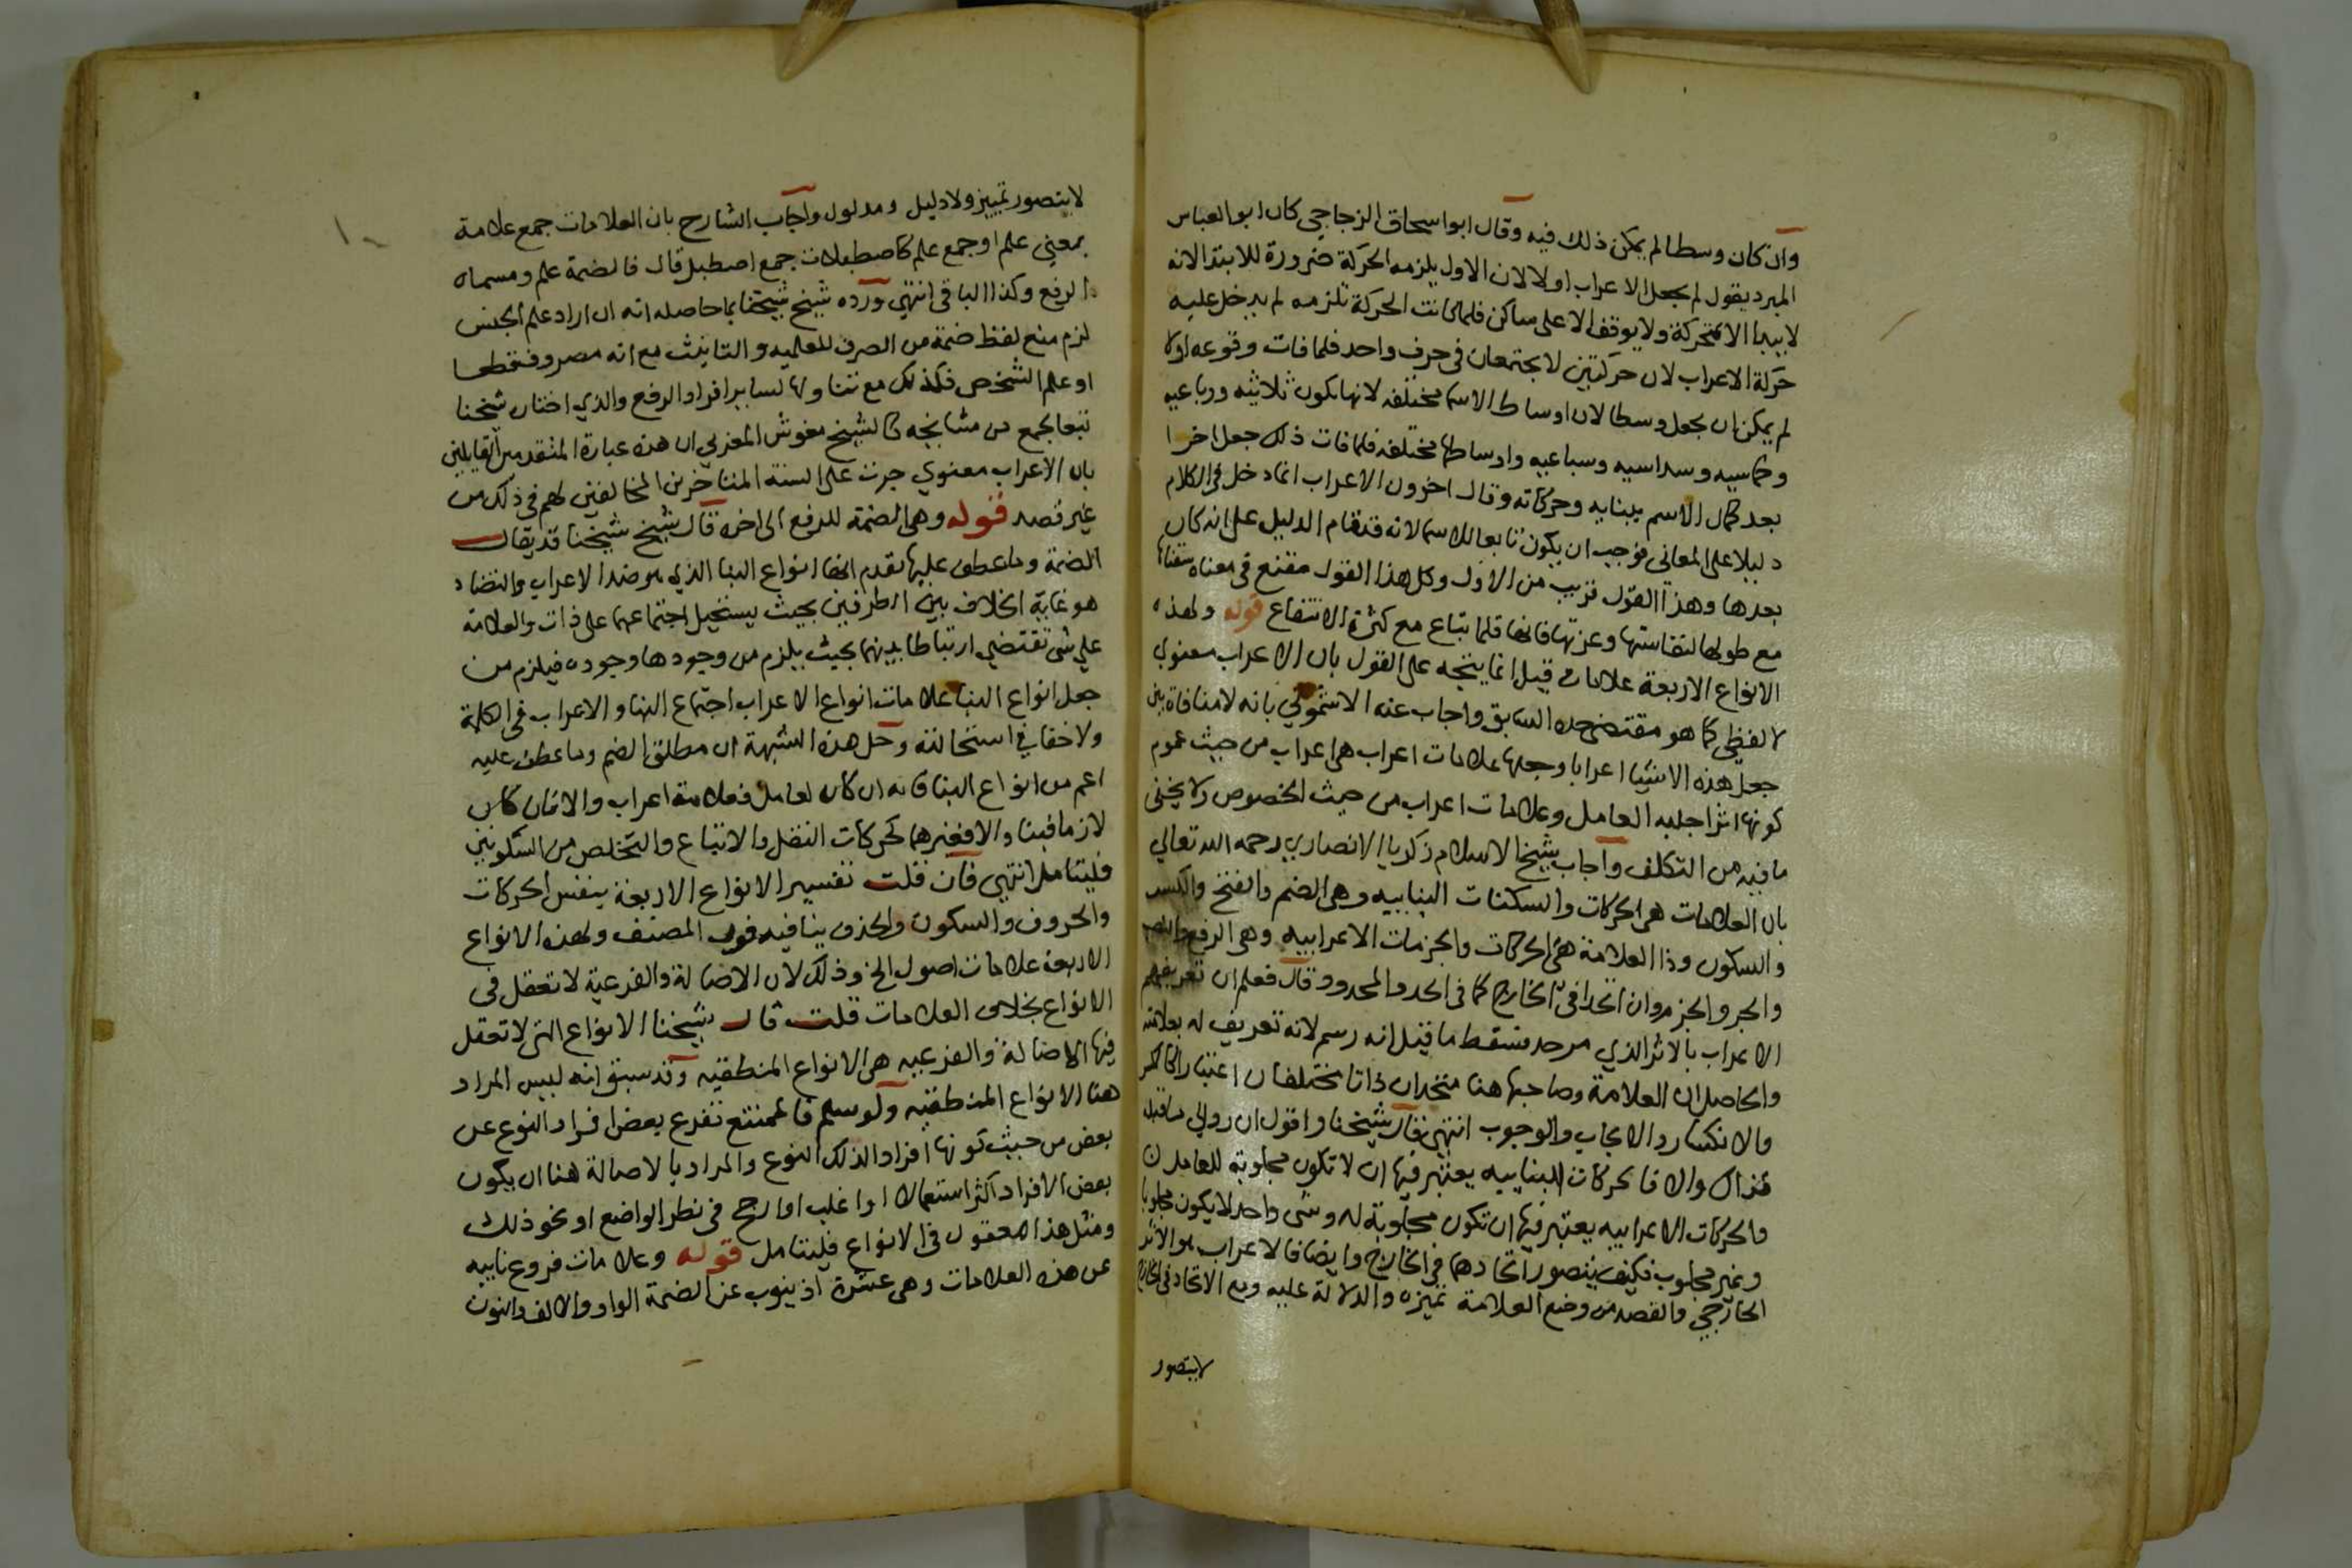 وان كان وسطا لم يمكن ذلك فيه وقال ابو اسحاق الزجاجي كان ابو العباس
المبرد يقول لم يجعل الاعراب اولا لان الاول يلزمه الحركة ضرورة للابتدا لانه
لا يبدا الا بمتحركة ولا يوقف الا على ساكن فلما كانت الحركة تلزمه لم يدخل عليه
حركة الاعراب لان حركتين لا يجتمعان في حرف واحد فلما فات وقوعه اولا
لم يمكن ان يجعل وسطا لان اوساط الاسما مختلفه لانها تكون ثلاثيه ورباعيه
وخماسيه وسداسيه وسباعيه واوساطها مختلفه فلما فات ذلك جعل اخرا
بعد كمال الاسم ببنايه وحركاته وقال اخرون الاعراب انما دخل في الكلام
دليلا على المعاني فوجب ان يكون تابعا للاسما لانه قد قام الدليل على انه كان
بعدها وهذا القول قريب من الاول وكل هذا القول مقنع في معناه سقناها
مع طولها لنفاستها وعزتها فانها قلما تباع مع كثرة الانتفاع قوله ولهذه
الانواع الاربعة علامات قيل انما يتجه على القول بان الاعراب معنوي
لا لفظي كما هو مقتضى حده السابق واجاب عنه الاشموني بانه لا منافاة بين
جعل هذه الاشيا اعرابا وجعلها علامات اعراب هي اعراب من حيث عموم
كونها اثرا جلبه العامل وعلامات اعراب من حيث الخصوص ولا يخفى
ما فيه من التكلف واجاب شيخ الاسلام زكريا الانصاري رحمه الله تعالي
بان العلامات هي الحركات والسكنات البنائيه وهي الضم والفتح والكسر
والسكون وذا العلامة هي الحركات والجزمات الاعرابيه وهي الرفع والنصب
والجر والجزم وان اتحدا في الخارج كما في الحد والمحدود وقال فعلم ان تعريفهم
الاعراب بالاثر الذي مر حد فسقط ما قيل انه رسم لانه تعريف له بعلامته
والحاصل ان العلامة وصاحبها هنا متحدان ذاتا مختلفان اعتبارا كالكسر
والانكسار والايجاب والوجوب انتهى فقال شيخنا واقول ان روالى سافيله
فذاك والا فالحركات البنائيه يعتبر فيها ان لا تكون مجلوبة للعامل
والحركات الاعرابيه يعتبر فيها ان تكون مجلوبة له وشى واحد لا يكون مجلوبا
وغير مجلوب فكيف يتصور اتحادهما في الخارج وايضا فالاعراب هو الاثر
الخارجي والقصد من وضع العلامة تميزه والدلالة عليه ومع الاتحاد في الخارج
لا يتصور
١٠
لا يتصور تمييز ولا دليل ومدلول واجاب الشارح بان العلامات جمع علامة
بمعني علم او جمع علم كاصطبلات جمع اصطبل قال فالضمة علم ومسماه
الرفع وكذا الباقي انتهى ورده شيخ شيخنا بما حاصله انه ان اراد علم الجنس
لزم منع لفظ ضمة من الصرف للعلميه والتانيث مع انه مصروف قطعا
او علم الشخص فكذلك مع تناولها لساير افراد الرفع والذي اختار شيخنا
تبعا لجمع من مشايخه كالشيخ مغوش المغربي ان هذه عبارة المتقدمين القايلين
بان الاعراب معنوي جرت على السنة المتاخرين المخالفين لهم في ذلك من
غير قصد قوله وهي الضمة للرفع الى اخره قال شيخ شيخنا قد يقال
الضمة وما عطف عليها تقدم انها انواع البنا الذي هو ضد الاعراب والتضاد
هو غاية الخلاف بين الطرفين بحيث يستحيل اجتماعهما على ذات والعلامة
علي شي تقتضي ارتباطا بينهما بحيث يلزم من وجودها وجوده فيلزم من
جعل انواع البنا علامات انواع الاعراب اجتماع البنا والاعراب في الكلمة
ولا خفا في استحالته وحل هذه الشبهة ان مطلق الضم وما عطف عليه
اعم من انواع البنا فانه ان كان لعامل فعلامة اعراب والا فان كان
لازما فبنا والا فغيرهما كحركات النقل والاتباع والتخلص من السكونين
فليتامل انتهي فان قلت تفسير الانواع الاربعة بنفس الحركات
والحروف والسكون والحذف ينافيه قول المصنف ولهذه الانواع
الاربعة علامات اصول الخ وذلك لان الاصالة والفرعية لا تعقل في
الانواع بخلاف العلامات قلت قال شيخنا الانواع التي لا تعقل
فيها الاصالة والفرعيه هي الانواع المنطقيه وقد سبق انه ليس المراد
هنا الانواع المنطقيه ولو سلم فالممتنع تفرع بعض افراد النوع عن
بعض من حيث كونها افرادا لذلك النوع والمراد بالاصالة هنا ان يكون
بعض الافراد اكثر استعمالا او اغلب او ارجح في نظر الواضع او نحو ذلك
ومثل هذا معقول في الانواع فليتامل قوله وعلامات فروع نايبه
عن هذه العلامات وهي عشرة اذ ينوب عن الضمة الواو والالف والنون